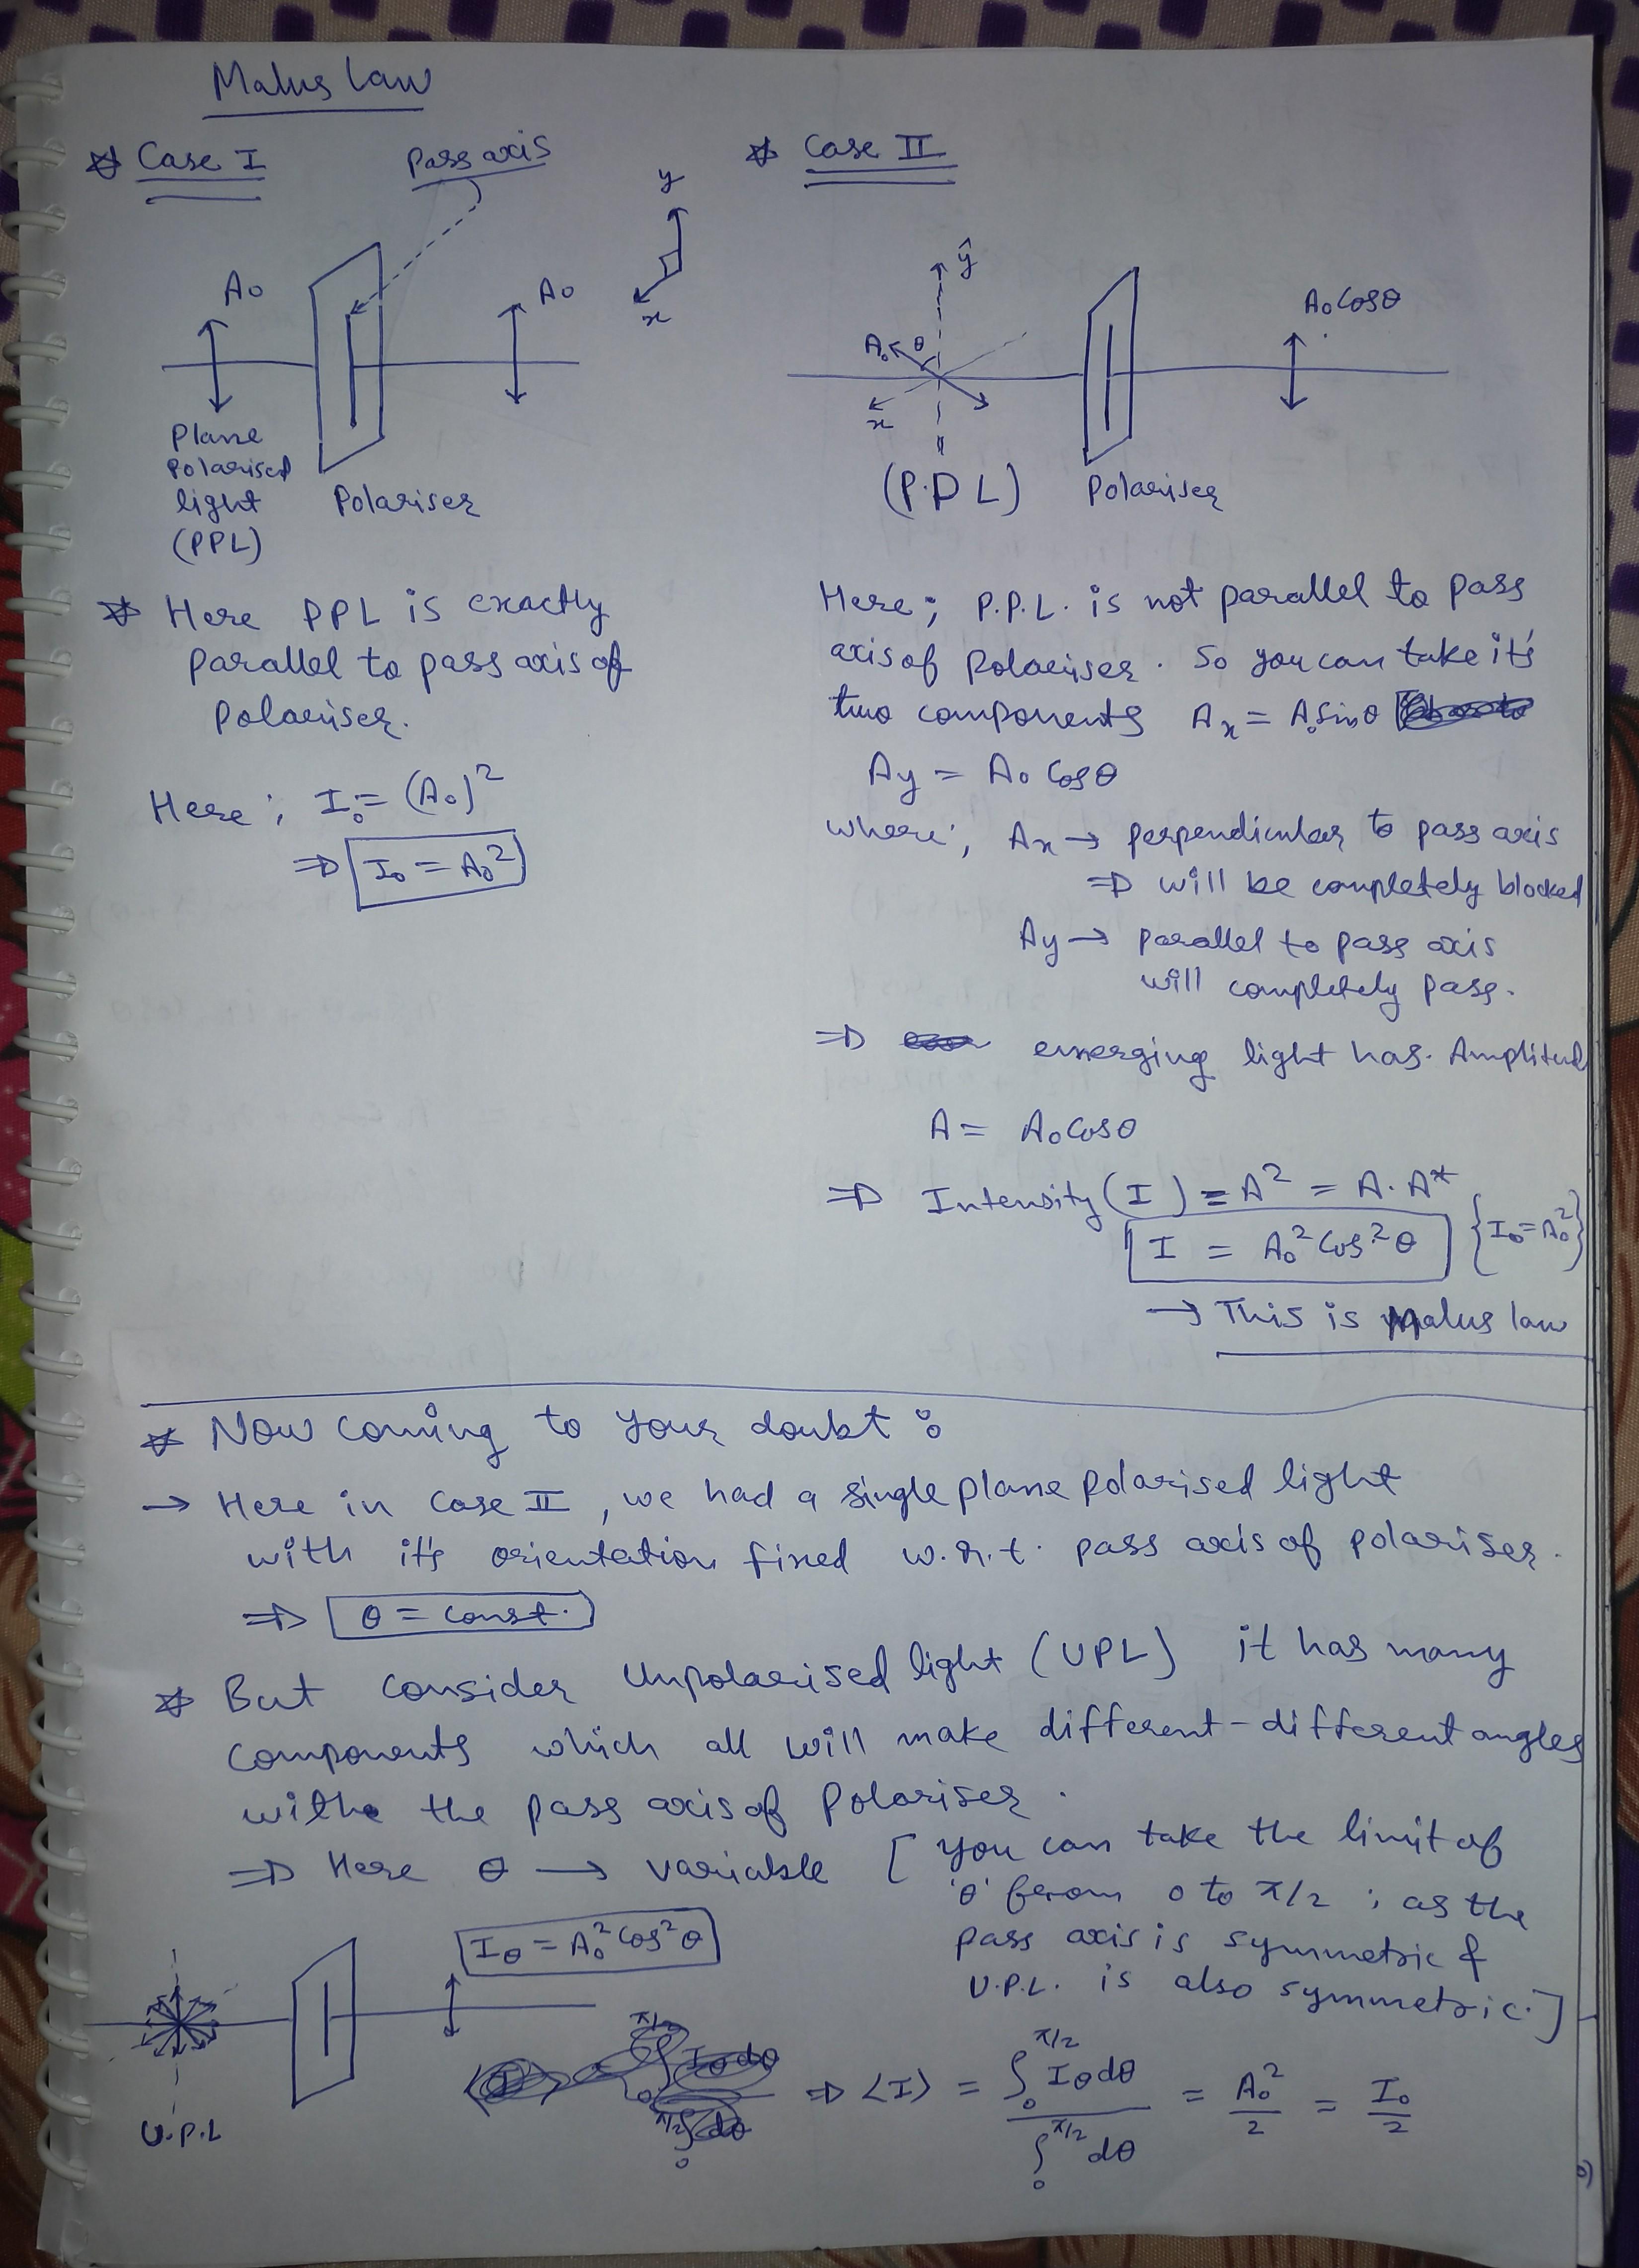 Malus Law
* Case I
Pass axis
y
x
A₀
A₀
Plane
Polarised
light
(PPL)
Polariser
* Here PPL is exactly
parallel to pass axis of
Polariser.
Here ; I₀ = (A₀)²
⇒ I₀ = A₀²
* Case II
ŷ
A₀
θ
x
(P.P.L)
Polariser
A₀ Cosθ
Here ; P.P.L. is not parallel to pass
axis of Polariser. So you can take it's
two components Aₓ = A₀ Sinθ
Ay = A₀ Cosθ
where ; Aₓ → perpendicular to pass axis
⇒ will be completely blocked
Ay → parallel to pass axis
will completely pass.
⇒ emerging light has. Amplitud
A = A₀ Cosθ
⇒ Intensity (I) = A² = A. A*
I = A₀² Cos²θ {I₀ = A₀²}
→ This is Malus law
* Now coming to your doubt :
→ Here in Case II , we had a single plane polarised light
with it's orientation fixed w.r.t. pass axis of polariser.
⇒ θ = Const.
* But consider Unpolarised light (UPL) it has many
components which all will make different-different angles
withe the pass axis of Polariser.
⇒ Here θ → variable [ you can take the limit of
'θ' from 0 to π/2 ; as the
pass axis is symmetric &
U.P.L. is also symmetric.]
Iθ = A₀² Cos²θ
U.P.L
⇒ ⟨I⟩ = ∫₀^π/2 Iθ dθ / ∫₀^π/2 dθ = A₀²/2 = I₀/2